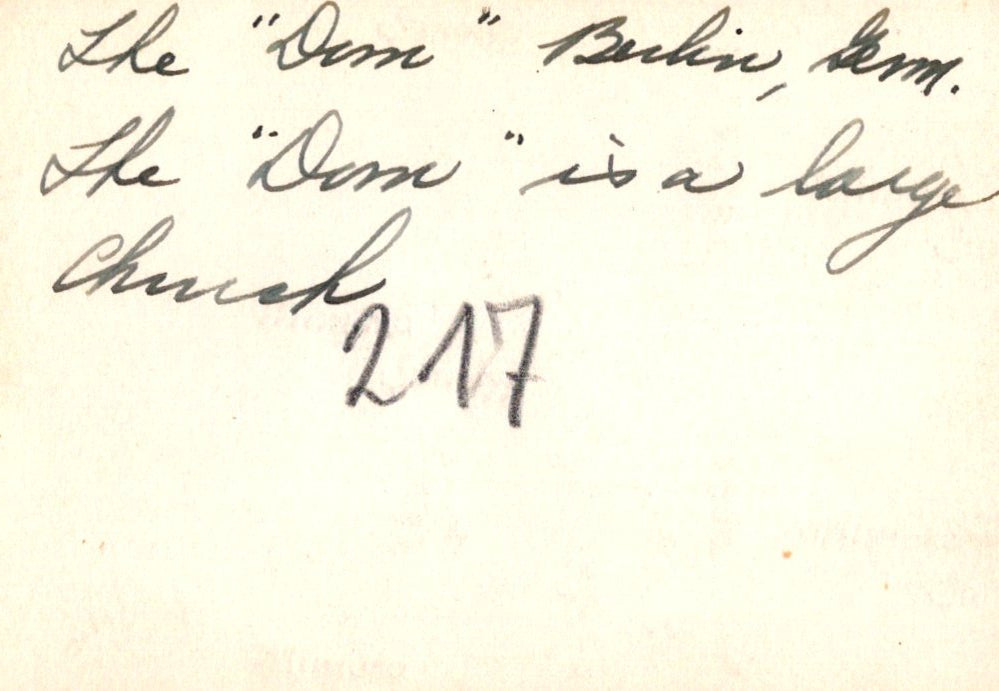 The "Dom" Berlin, Germ.
The "Dom" is a large
Church
217